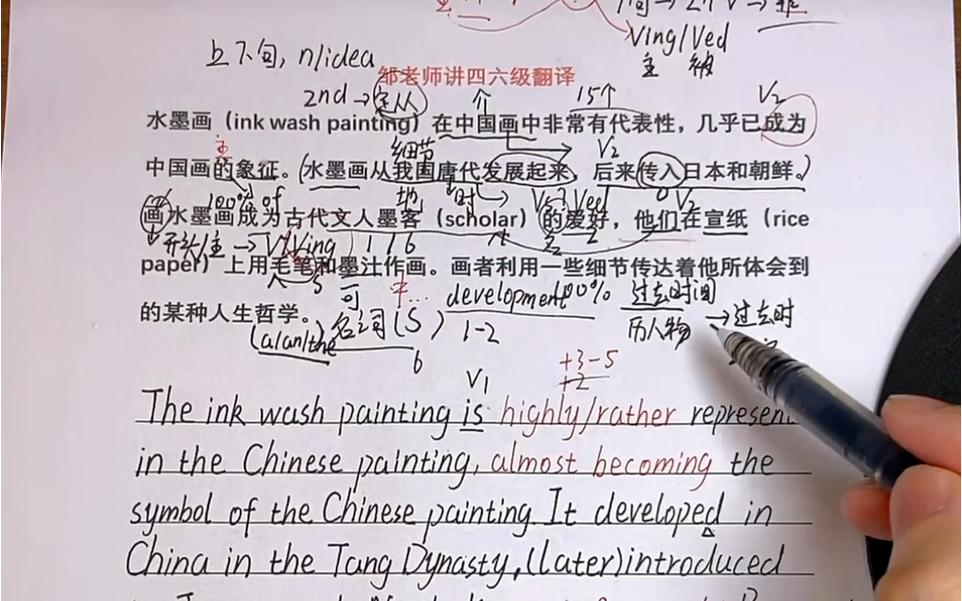 句→2个V→非
Ving/Ved
主 被
上下句, n/idea
邹老师讲四六级翻译
2nd→定从 介 15个 V2
水墨画（ink wash painting）在中国画中非常有代表性，几乎已成为
主 细节 V2
中国画的象征。（水墨画从我国唐代发展起来，后来传入日本和朝鲜。）
100% of 地 时 Ved V2
画水墨画成为古代文人墨客（scholar）的爱好，他们在宣纸（rice
开头/主→Ving
paper）上用毛笔和墨汁作画。画者利用一些细节传达着他所体会到
可 development 100% 过去时间
的某种人生哲学。
(a/an/the 名词(s) 1-2 历人物 →过去时
6 +3-5
V1 +2
The ink wash painting is highly/rather represent
in the Chinese painting, almost becoming the
symbol of the Chinese painting It developed in
China in the Tang Dynasty, (later) introduced